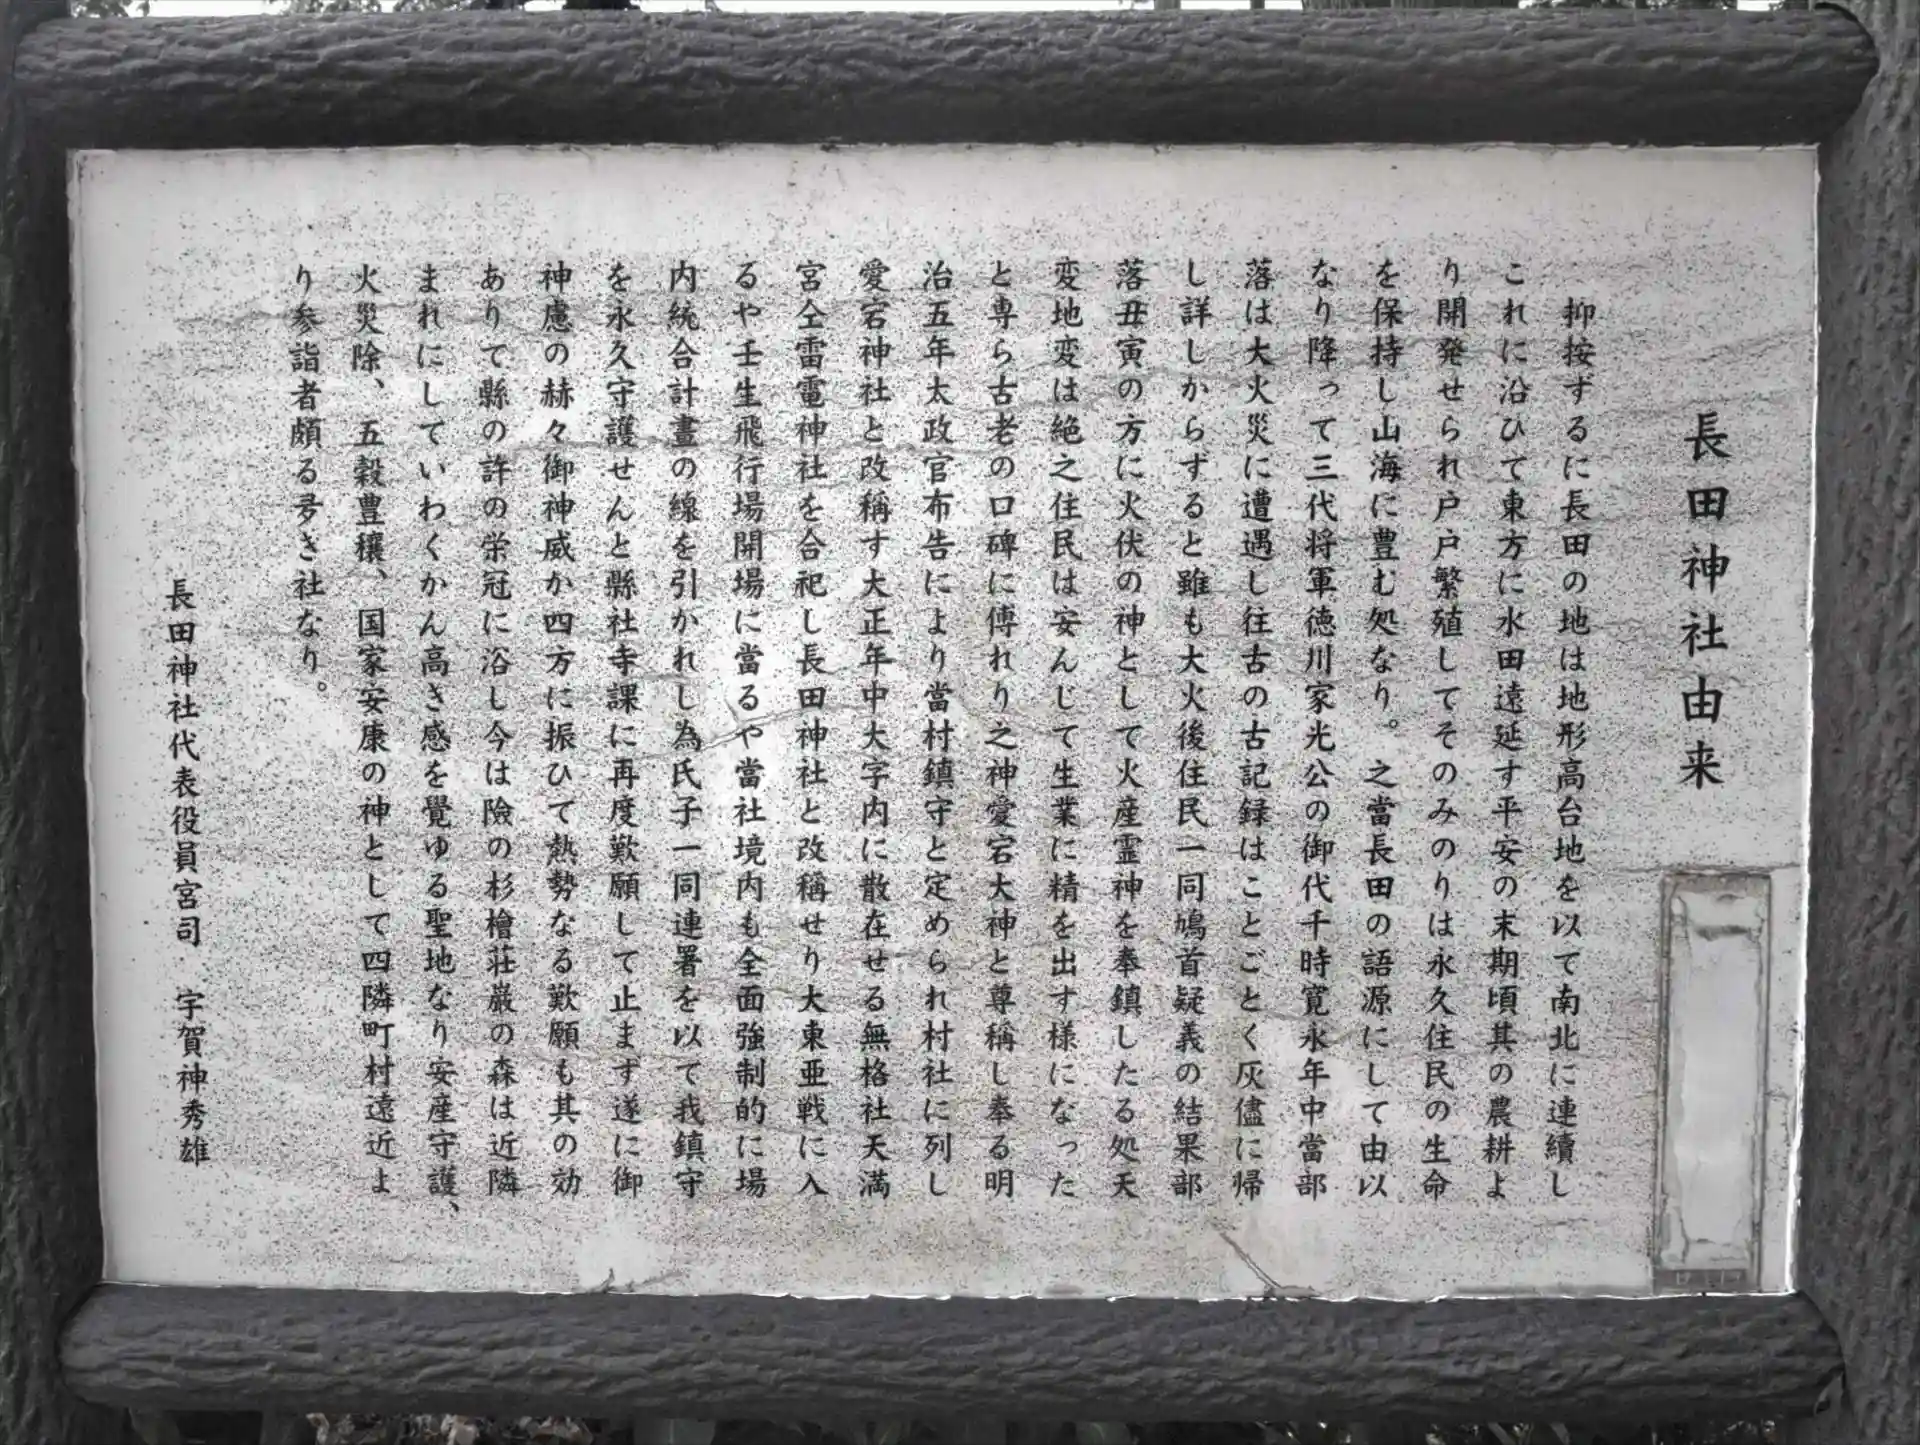 長田神社由来
抑按ずるに長田の地は地形高台地を以て南北に連續し
これに沿ひて東方に水田遠延す平安の末期頃其の農耕よ
り開発せられ戸戸繁殖してそのみのりは永久住民の生命
を保持し山海に豊む処なり。之當長田の語源にして由以
なり降って三代将軍徳川家光公の御代千時寛永年中當部
落は大火災に遭遇し往古の古記録はことごとく灰儘に帰
し詳しからずると雖も大火後住民一同鳩首疑義の結果部
落丑寅の方に火伏の神として火産霊神を奉鎮したる処天
変地変は絶之住民は安んじて生業に精を出す様になった
と専ら古老の口碑に傳れり之神愛宕大神と尊稱し奉る明
治五年太政官布告により當村鎮守と定められ村社に列し
愛宕神社と改稱す大正年中大字内に散在せる無格社天満
宮仝雷電神社を合祀し長田神社と改稱せり大東亜戦に入
るや壬生飛行場開場に當るや當社境内も全面強制的に場
内統合計畫の線を引かれし為氏子一同連署を以て我鎮守
を永久守護せんと縣社寺課に再度歎願して止まず遂に御
神慮の赫々御神威か四方に振ひて熱勢なる歎願も其の効
ありて縣の許の栄冠に浴し今は險の杉檜荘巌の森は近隣
まれにしていわくかん高き感を覺ゆる聖地なり安産守護、
火災除、五穀豊穰、国家安康の神として四隣町村遠近よ
り参詣者頗る多き社なり。
長田神社代表役員宮司　宇賀神秀雄